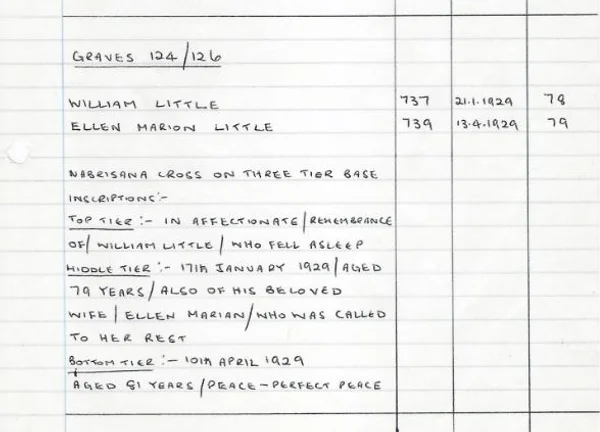 GRAVES 124/126
WILLIAM LITTLE 737 21.1.1929 78
ELLEN MARION LITTLE 739 13.4.1929 79
NABRISANA CROSS ON THREE TIER BASE
INSCRIPTIONS:-
TOP TIER:- IN AFFECTIONATE/REMEMBRANCE
OF/WILLIAM LITTLE/WHO FELL ASLEEP
MIDDLE TIER:- 17th JANUARY 1929/AGED
79 YEARS/ALSO OF HIS BELOVED
WIFE/ELLEN MARIAN/WHO WAS CALLED
TO HER REST
BOTTOM TIER:- 10th APRIL 1929
AGED 81 YEARS/PEACE-PERFECT PEACE